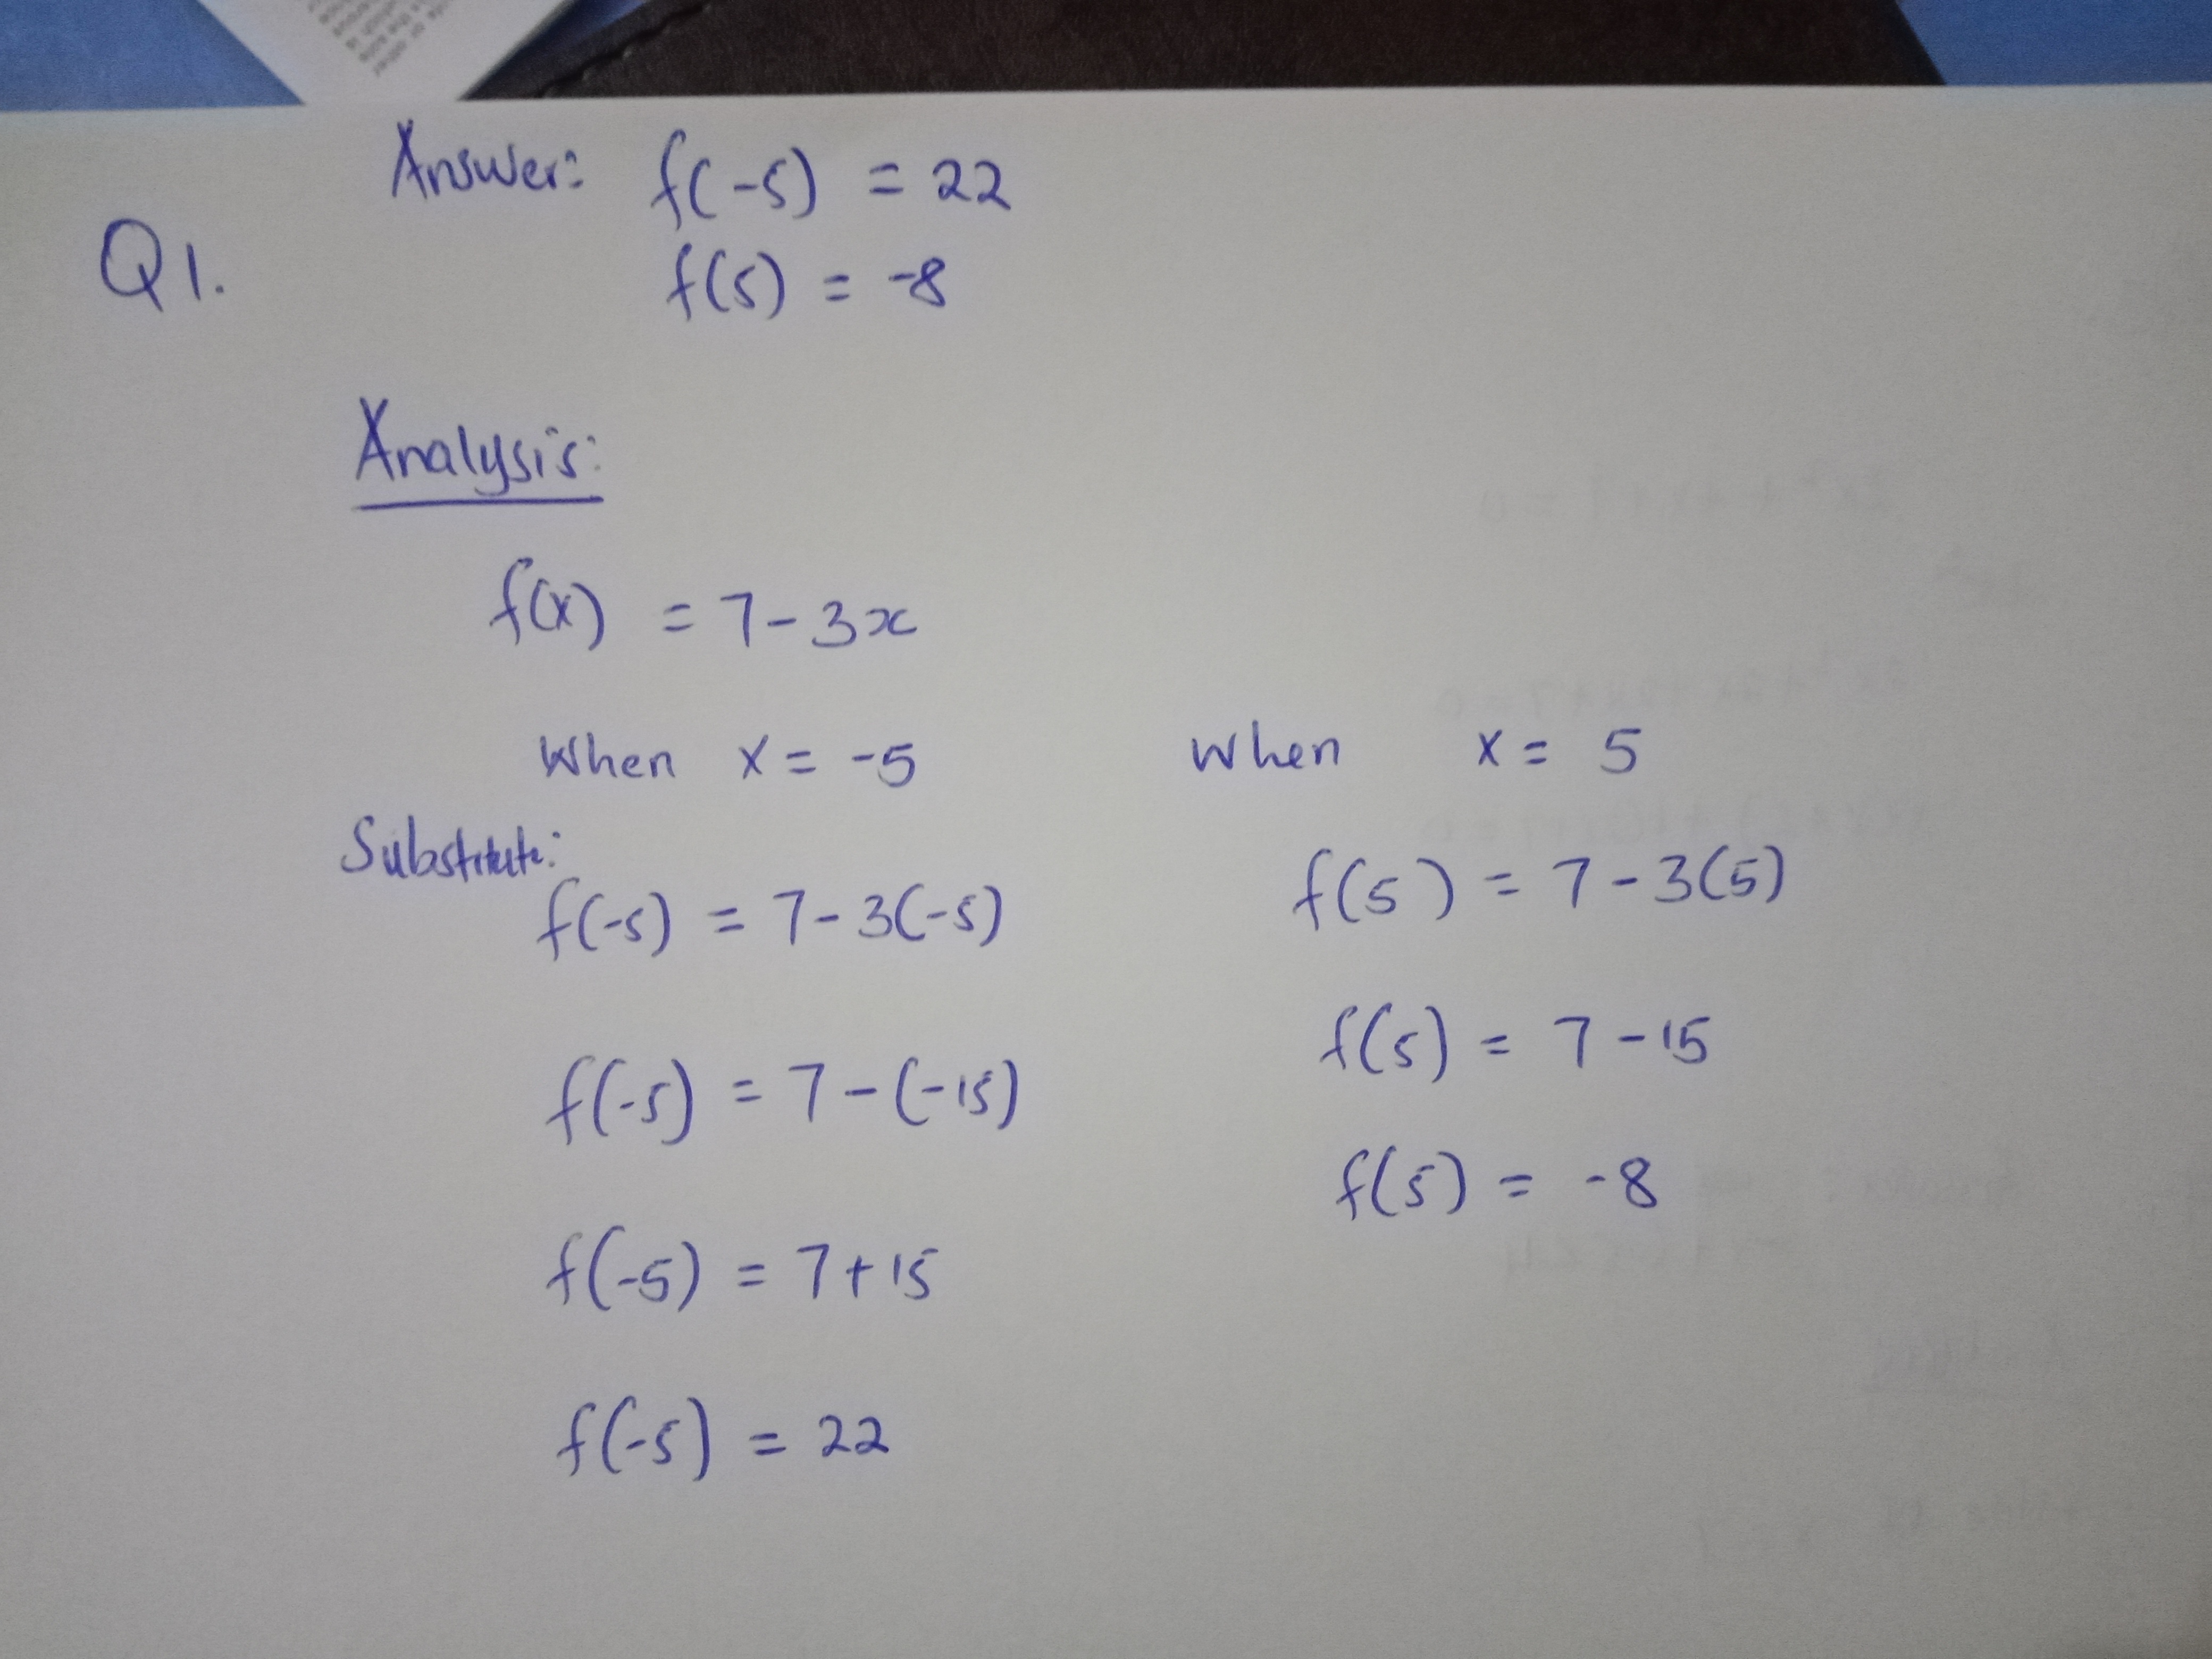 Answer: f(-5) = 22
Q1.
f(5) = -8
Analysis:
f(x) = 7 - 3x
When x = -5
When x = 5
Substitute:
f(-5) = 7 - 3(-5)
f(-5) = 7 - (-15)
f(-5) = 7 + 15
f(-5) = 22
f(5) = 7 - 3(5)
f(5) = 7 - 15
f(5) = -8